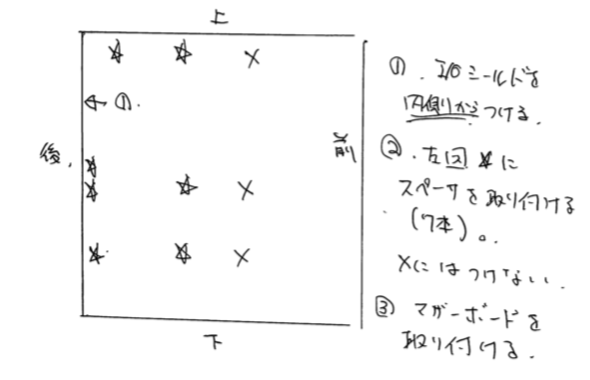 上
後、
前
下
← ①.
①. I/Oシールドを
内側りからつける.
②. 左図 ☆に
スペーサを取り付ける
(7本)。
×にはつけない.
③ マザーボードを
取り付ける.